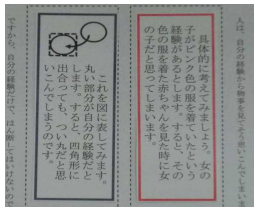 人は、自分の経験から物事を見てそう思いこんでしまいま
具体的に考えてみましょう。女の
子がピンク色の服で着ていたという
経験があるとします。すると、その
色の服を着た赤ちゃんを見た時に女
の子だと思ってしまいます。
これを図に表してみます。
丸い部分が自分の経験だと
します。すると、四角形に
出合っても、つい丸だと思
いこんでしまうのです。
ですから、自分の経験だけで、はん断してはいけないので